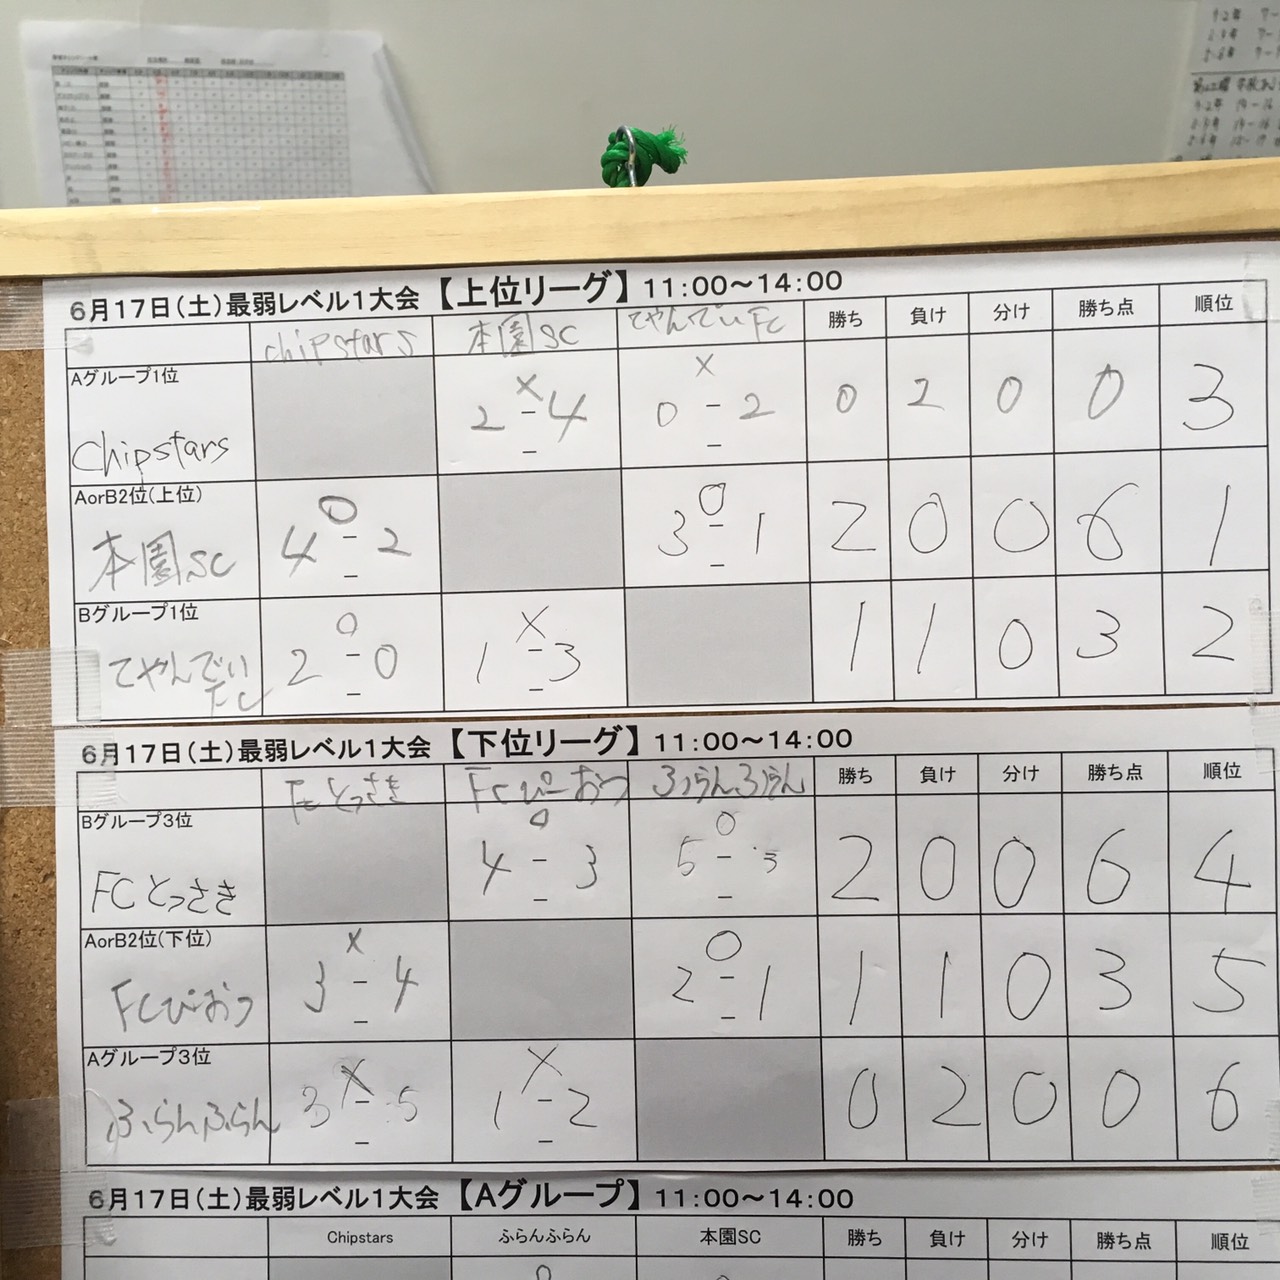 6月17日(土)最弱レベル1大会 【上位リーグ】 11:00~14:00
chipstars 本園SC てやんでいFC 勝ち 負け 分け 勝ち点 順位
Aグループ1位
Chipstars × 2 - 4 - × 0 - 2 - 0 2 0 0 3
AorB2位(上位)
本園SC 〇 4 - 2 - 〇 3 - 1 - 2 0 0 6 1
Bグループ1位
てやんでいFC 〇 2 - 0 - × 1 - 3 - 1 1 0 3 2
6月17日(土)最弱レベル1大会 【下位リーグ】 11:00~14:00
FCとっさき FCぴーおつ ふらんふらん 勝ち 負け 分け 勝ち点 順位
Bグループ3位
FCとっさき 〇 4 - 3 - 〇 5 - 3 - 2 0 0 6 4
AorB2位(下位)
FCぴーおつ × 3 - 4 - 〇 2 - 1 - 1 1 0 3 5
Aグループ3位
ふらんふらん × 3 - 5 - × 1 - 2 - 0 2 0 0 6
6月17日(土)最弱レベル1大会 【Aグループ】 11:00~14:00
Chipstars ふらんふらん 本園SC 勝ち 負け 分け 勝ち点 順位